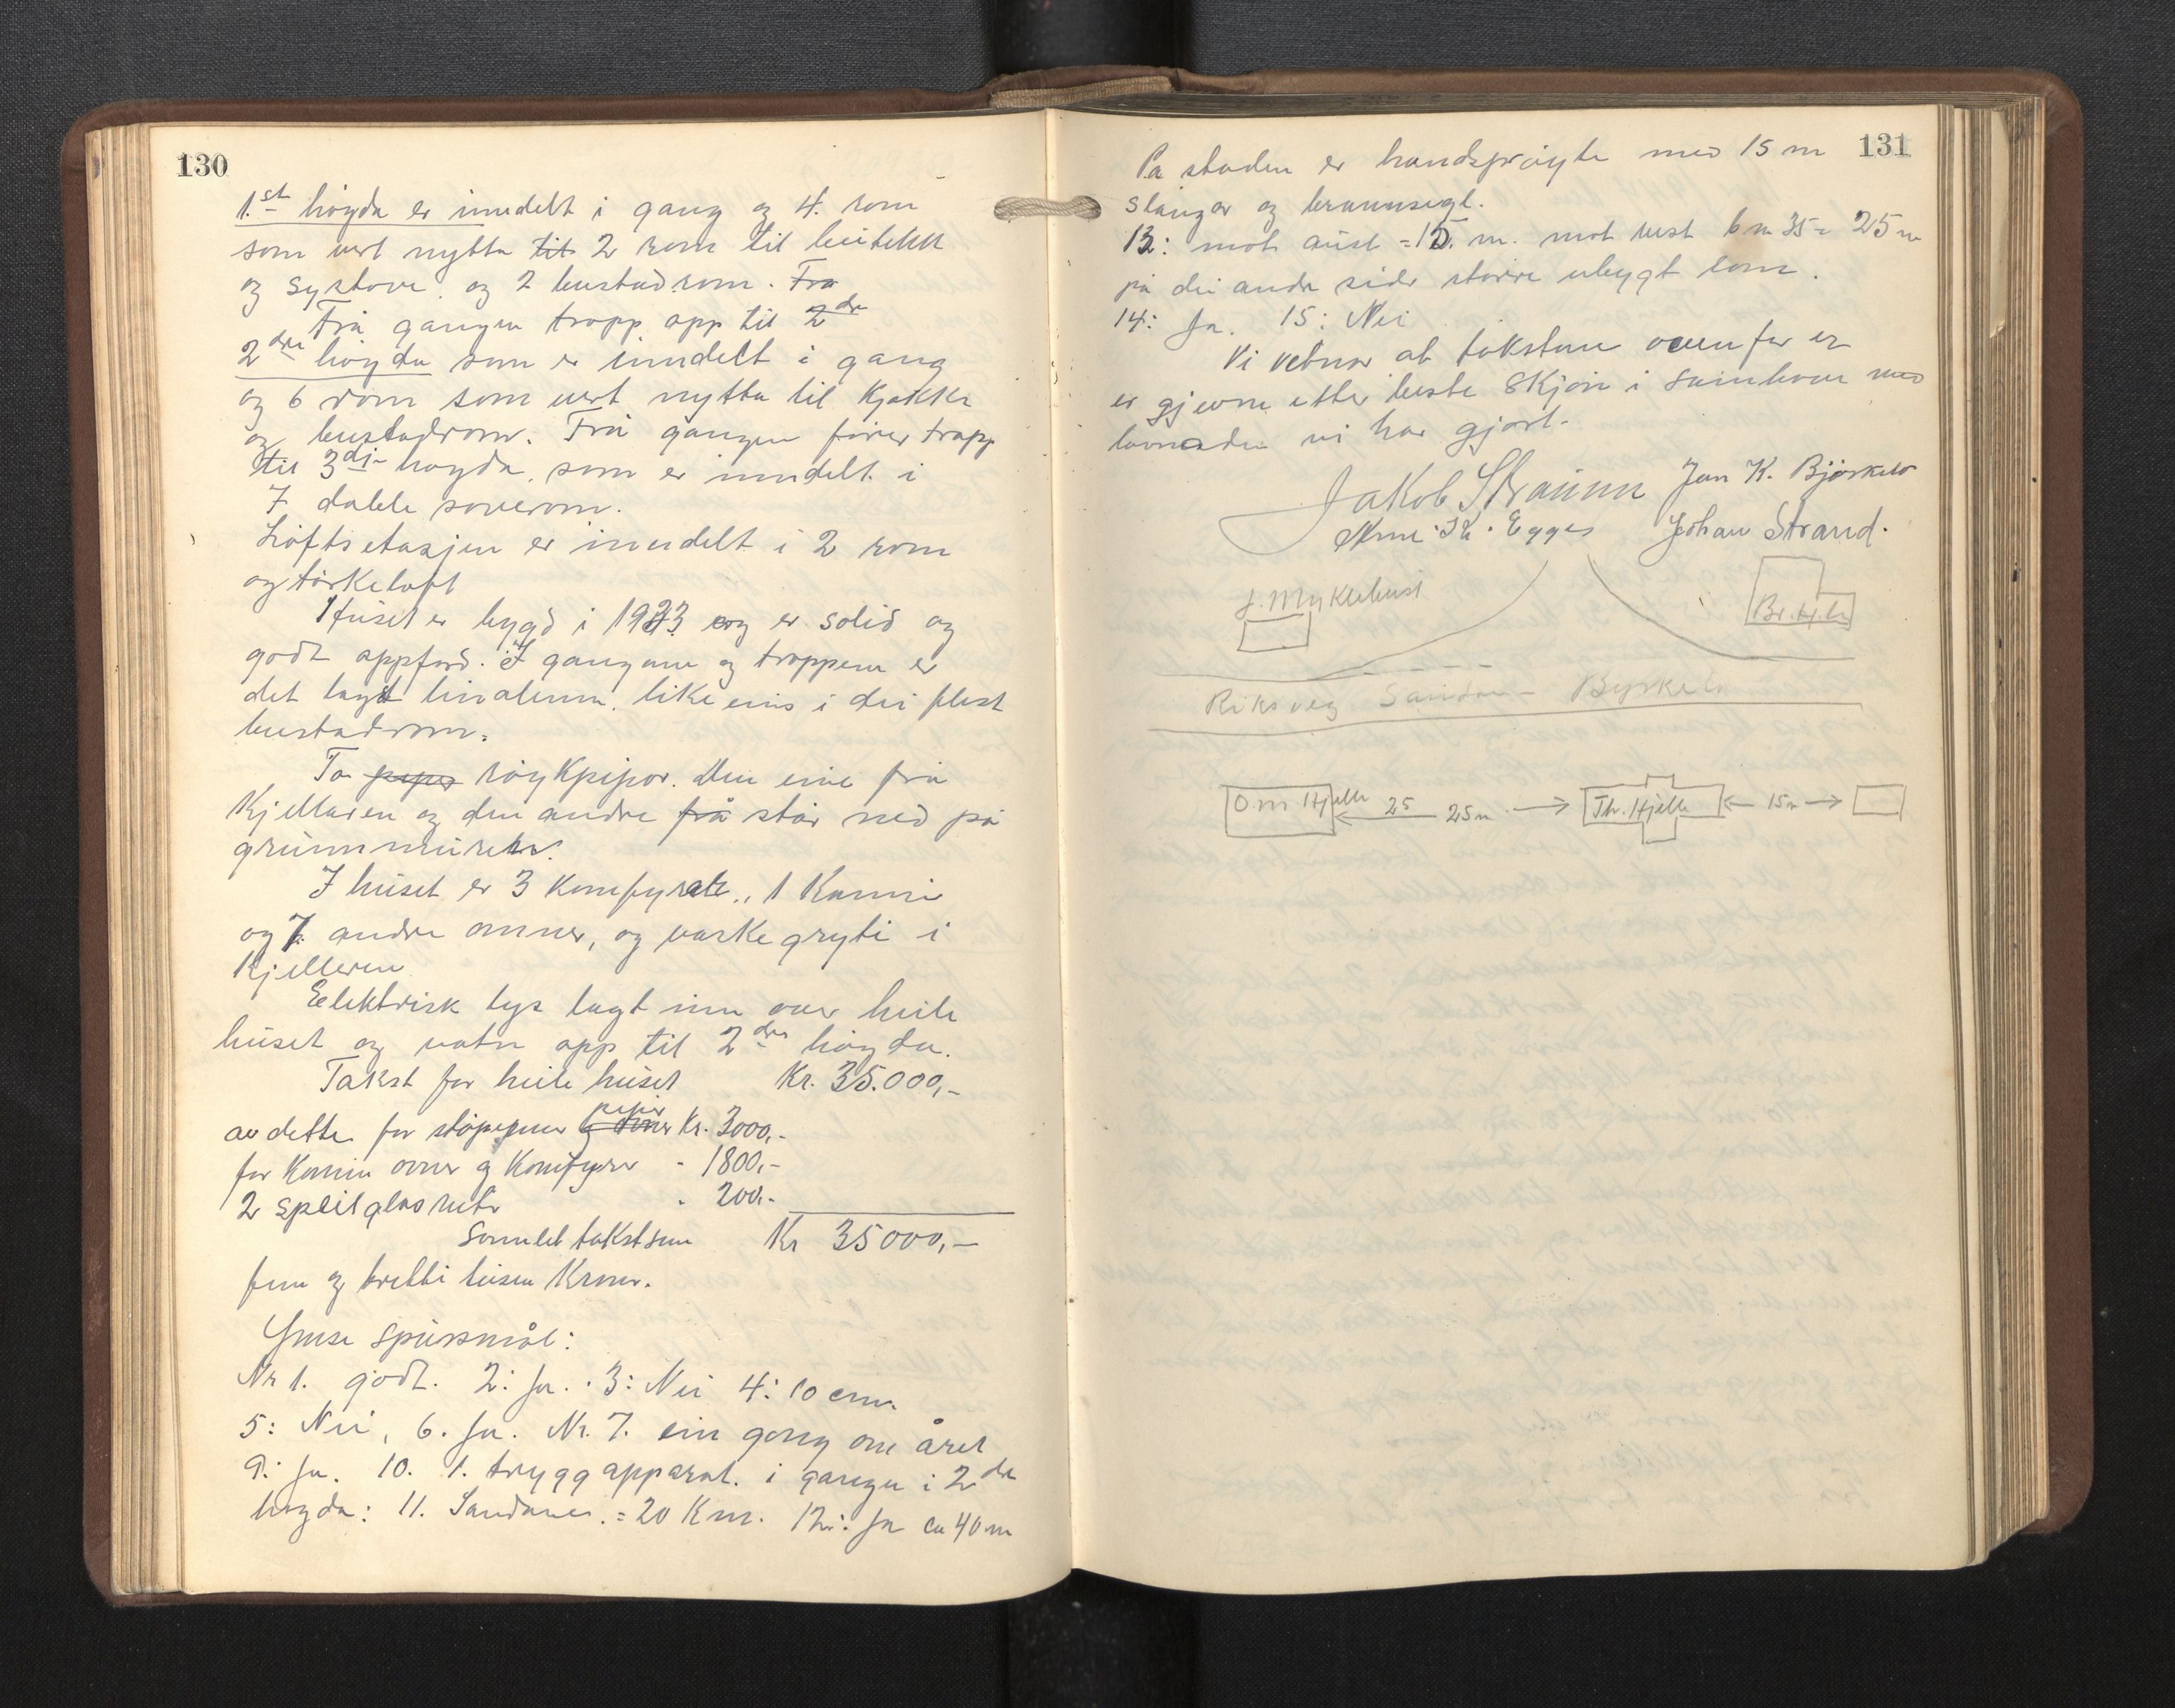 130
1.st høgda er inndelt i gang og 4. rom
som vert nytta til 2 rom til butikk
og systove og 2 bustadrom. Fra
Frå gangen tropp opp til 2dre
2dre høgda som er inndelt i gang
og 6 rom som vert nytta til kjøkke
og bustadrom. Frå gangen fører trapp
til 3dje høgda, som er inndelt i
7 doble soverom.
Loftsetasjen er inndelt i 2 rom
og tørkeloft
Huset er bygd i 1933 og er solid og
godt oppførd. I gangane og troppene er
det lagt linoleum, like eins i dei flest
bustadrom.
To piper røykpipor. Den eine frå
Kjellaren og den andre frå står ned på
grunnmuren.
I huset er 3 komfyrar, 1 Kamin
og 7. andre omner, og vaskegryte i
Kjelleren
Elektrisk lys lagt inn over heile
huset og vatn opp til 2dre høgda.
Takst for heile huset Kr. 35.000,-
av dette for støypepiper Kr. 3000,-
for Kamin ovner og Komfyrer - 1800,-
2 speilglasrute - 200.-
Samlet takstsum Kr 35000,-
fem og tretti tusen Kroner.
Ymse spursmål:
Nr 1. godt. 2: Ja. 3: Nei 4: 10 cm.
5: Nei, 6. Ja. Nr. 7. ein gong om året
9: Ja. 10. 1. trygg apparat. i gangen i 2dre
høgda: 11. Sandane. = 20 Km. 12: Ja ca 40 m
131
På staden er handsprøyte med 15 m
slanger og brannsegl.
13: mot aust = 15. m. mot vest 25 m
på dei andre sider større ubygt tom.
14: Ja. 15: Nei
Vi vitnar at taksten ovenfor er
er gjevne etter beste skjøn i samhøve med
lovnaden vi har gjort.
Jakob Straume Jon K. Bjørkelo
K. Egges Johan Strand.
J. Myklebust
Br. Hjelle
Riksveg Sandane - Byrkelo
O M Hjelle 25 25 m Th. Hjelle 15 m